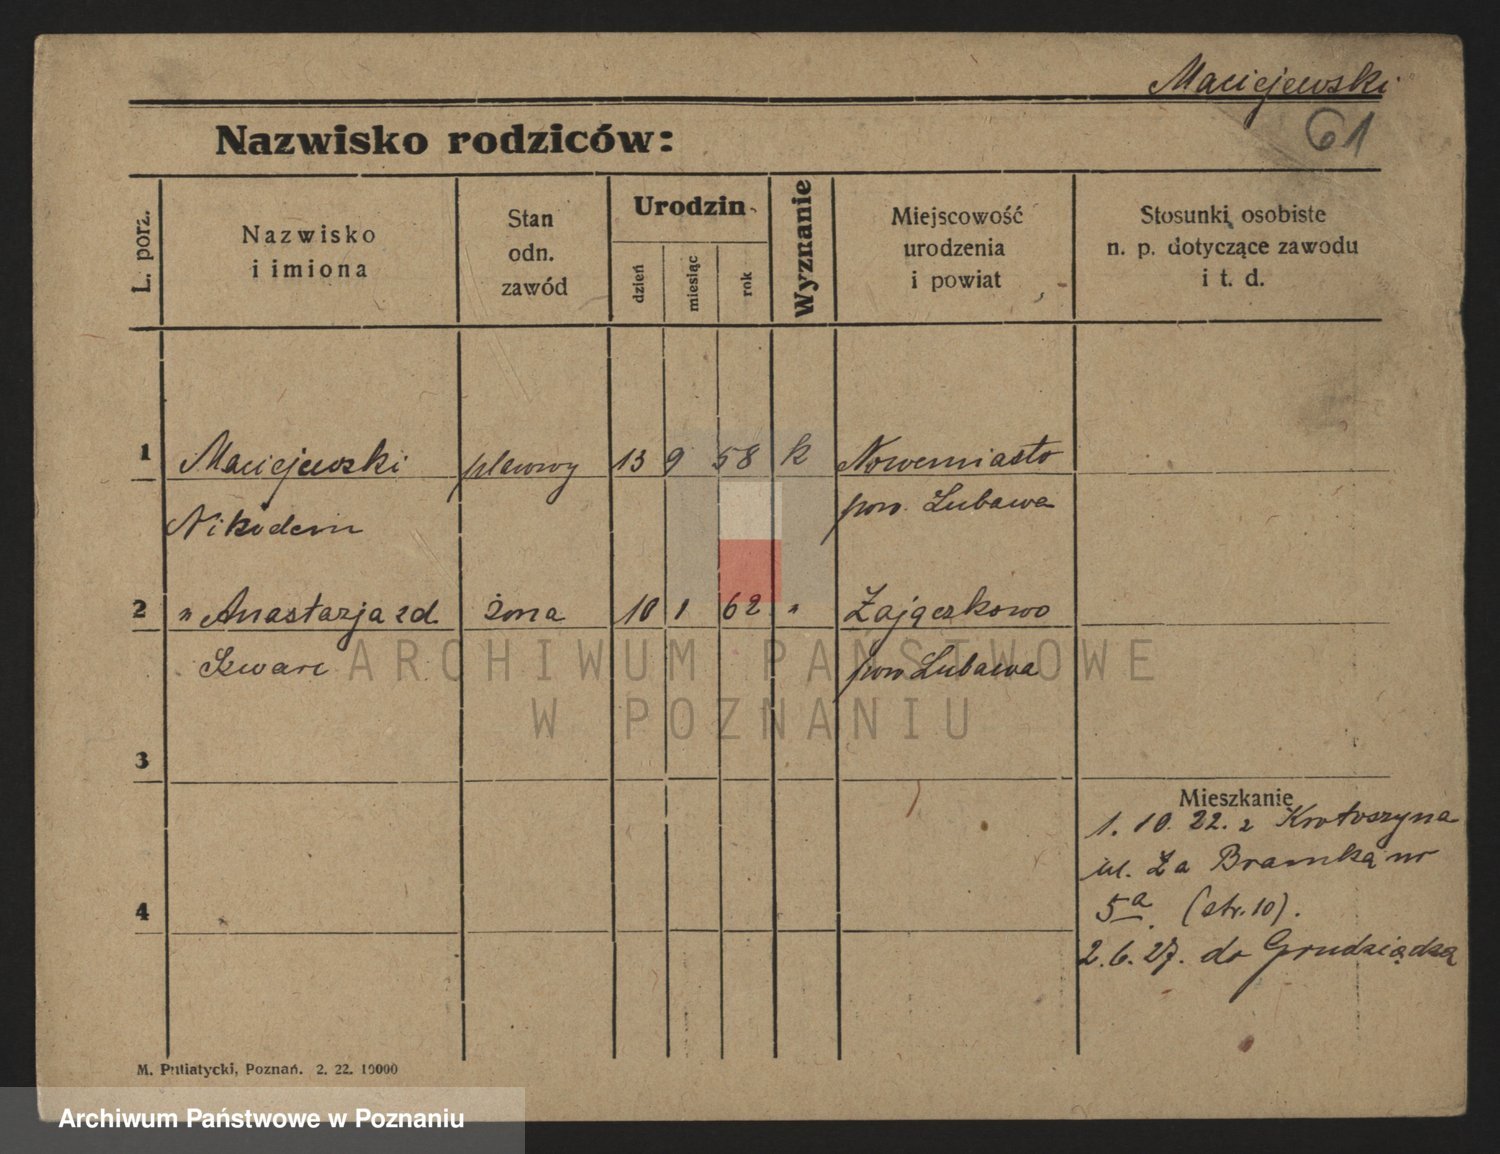 Maciejewski
61
Nazwisko rodziców:
L. porz.
Nazwisko
i imiona
Stan
odn.
zawód
Urodzin
dzień
miesiąc
rok
Wyznanie
Miejscowość
urodzenia
i powiat
Stosunki osobiste
n. p. dotyczące zawodu
i t. d.
1 Maciejewski 13 9 58 k Nowemiasto
Nikodem pow. Lubawa
2 " Anastazja zd. żona 10 1 62 " Zajączkowo
Szwarc pow Lubawa
3
Mieszkanie
1. 10. 22. z Krotoszyna
ul. Za Bramką nr
5a (str. 10).
4
2. 6. 27. do Grudziądza
M. Putiatycki, Poznań. 2. 22. 10000
ARCHIWUM PAŃSTWOWE
W POZNANIU
Archiwum Państwowe w Poznaniu